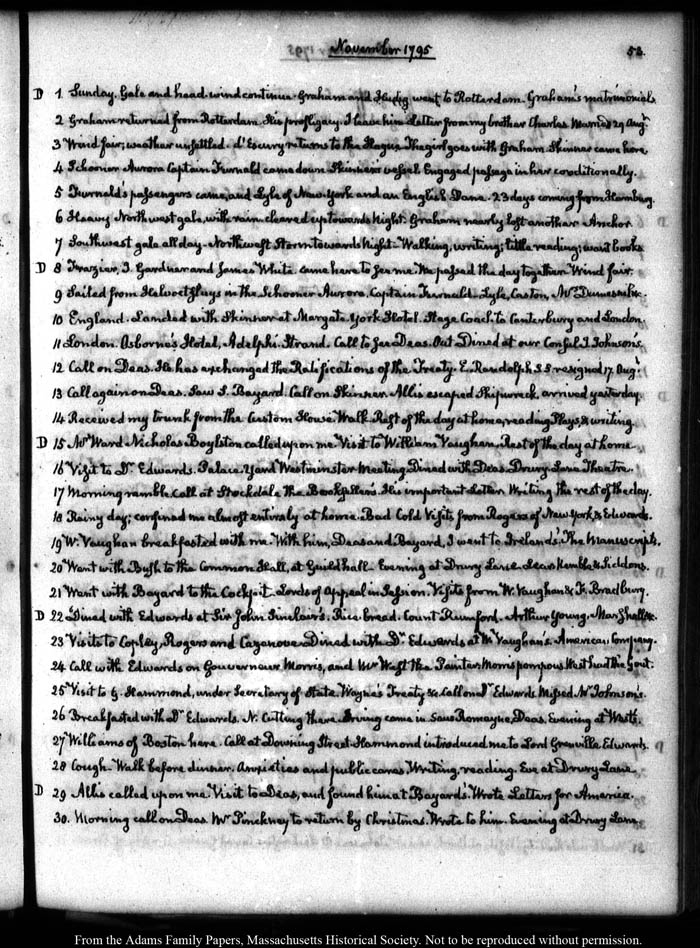 November 1795
53.
D 1. Sunday. Gale and head wind continue. Graham and went to Rotterdam. Graham's matrimonials.
2 Graham returned from Rotterdam. His profligacy. I leave him. Letter from my brother Charles. Married 29 Augt.
3 Wind fair; weather unsettled. d'Escury returns to the Hague. The girl goes with Graham. Skinner came here
4 Schooner Aurora Captain Furnald came down. Skinner's vessel. Engaged passage in her conditionally.
5 Furnald's passengers came, and Lyle of New York and an English Dane. 23 days coming from Hamburg.
6 Heavy Northwest gale, with rain. cleared up towards Night. Graham nearly lost another Anchor
7 Southwest gale all day. Northwest Storm towards Night. Walking, writing; little reading; want books
D 8 Frazier, J. Gardner and James White came here to see me. We passed the day together. Wind fair.
9 Sailed from Helvoetsluys in the Schooner Aurora, Captain Furnald. Lyle, Caston, Mrs.
10 England. Landed with Skinner at Margate. York Hotel. Stage Coach to Canterbury and London.
11 London. Osborne's Hotel, Adelphi. Strand. Call to see Deas. Out. Dined at our Consul J. Johnson's.
12 Call on Deas. He has exchanged the Ratifications of the Treaty. E. Randolph S.S. resigned 17. Augt.
13 Call again on Deas. Saw S. Bayard. Call on Skinner. Allis escaped Shipwreck, arrived yesterday
14 Received my trunk from the Custom House. Walk. Rest of the day at home, reading Plays, & writing.
D 15 Mr Ward Nicholas Boylston called upon me. Visit to William Vaughan. Rest of the day at home
16 Visit to Dr Edwards. Palace-Yard Westminster Meeting. Dined with Deas. Drury Lane Theatre.
17 Morning ramble. Call at Stockdale the Bookseller's. His important Letter. Writing the rest of the day.
18 Rainy day; confined me almost entirely at home. Bad Cold. Visits from Rogers of New York, & Edwards.
19 W. Vaughan breakfasted with me. With him, Deas and Bayard, I went to Ireland's. The Manuscripts.
20 Went with Bush to the Common Hall, at Guildhall. Evening at Drury Lane. Lear. Kemble & Siddons.
21 Went with Bayard to the Cockpit. Lords of Appeal in Session. Visits from W. Vaughan & F. Bradbury.
D 22 Dined with Edwards at Sir John Sinclair's. Rice bread. Count Rumford. Arthur Young. Marshall &c.
23 Visits to Copley, Rogers and Cazenove. Dined with Dr Edwards at Mr Vaughan's. American Company.
24 Call with Edwards on Gouverneur Morris, and Mr West the Painter. Morris pompous. West had the Gout.
25 Visit to G. Hammond, under Secretary of State. Wayne's Treaty &c. Call on Dr Edwards. Missed Mr Johnson's.
26 Breakfasted with Dr Edwards. N. Cutting there. came in. Saw Romayne, Deas. Evening at West's.
27 Williams of Boston here. Call at Downing Street. Hammond introduced me to Lord Grenville. Edwards.
28 Cough. Walk before dinner. Anxieties and public cares. Writing, reading. Eve at Drury Lane.
D 29 Allis called upon me. Visit to Deas, and found him at Bayard's. Wrote Letters for America.
30. Morning call on Deas. Mr Pinckney to return by Christmas. Wrote to him. Evening at Drury Lane.
From the Adams Family Papers, Massachusetts Historical Society. Not to be reproduced without permission.